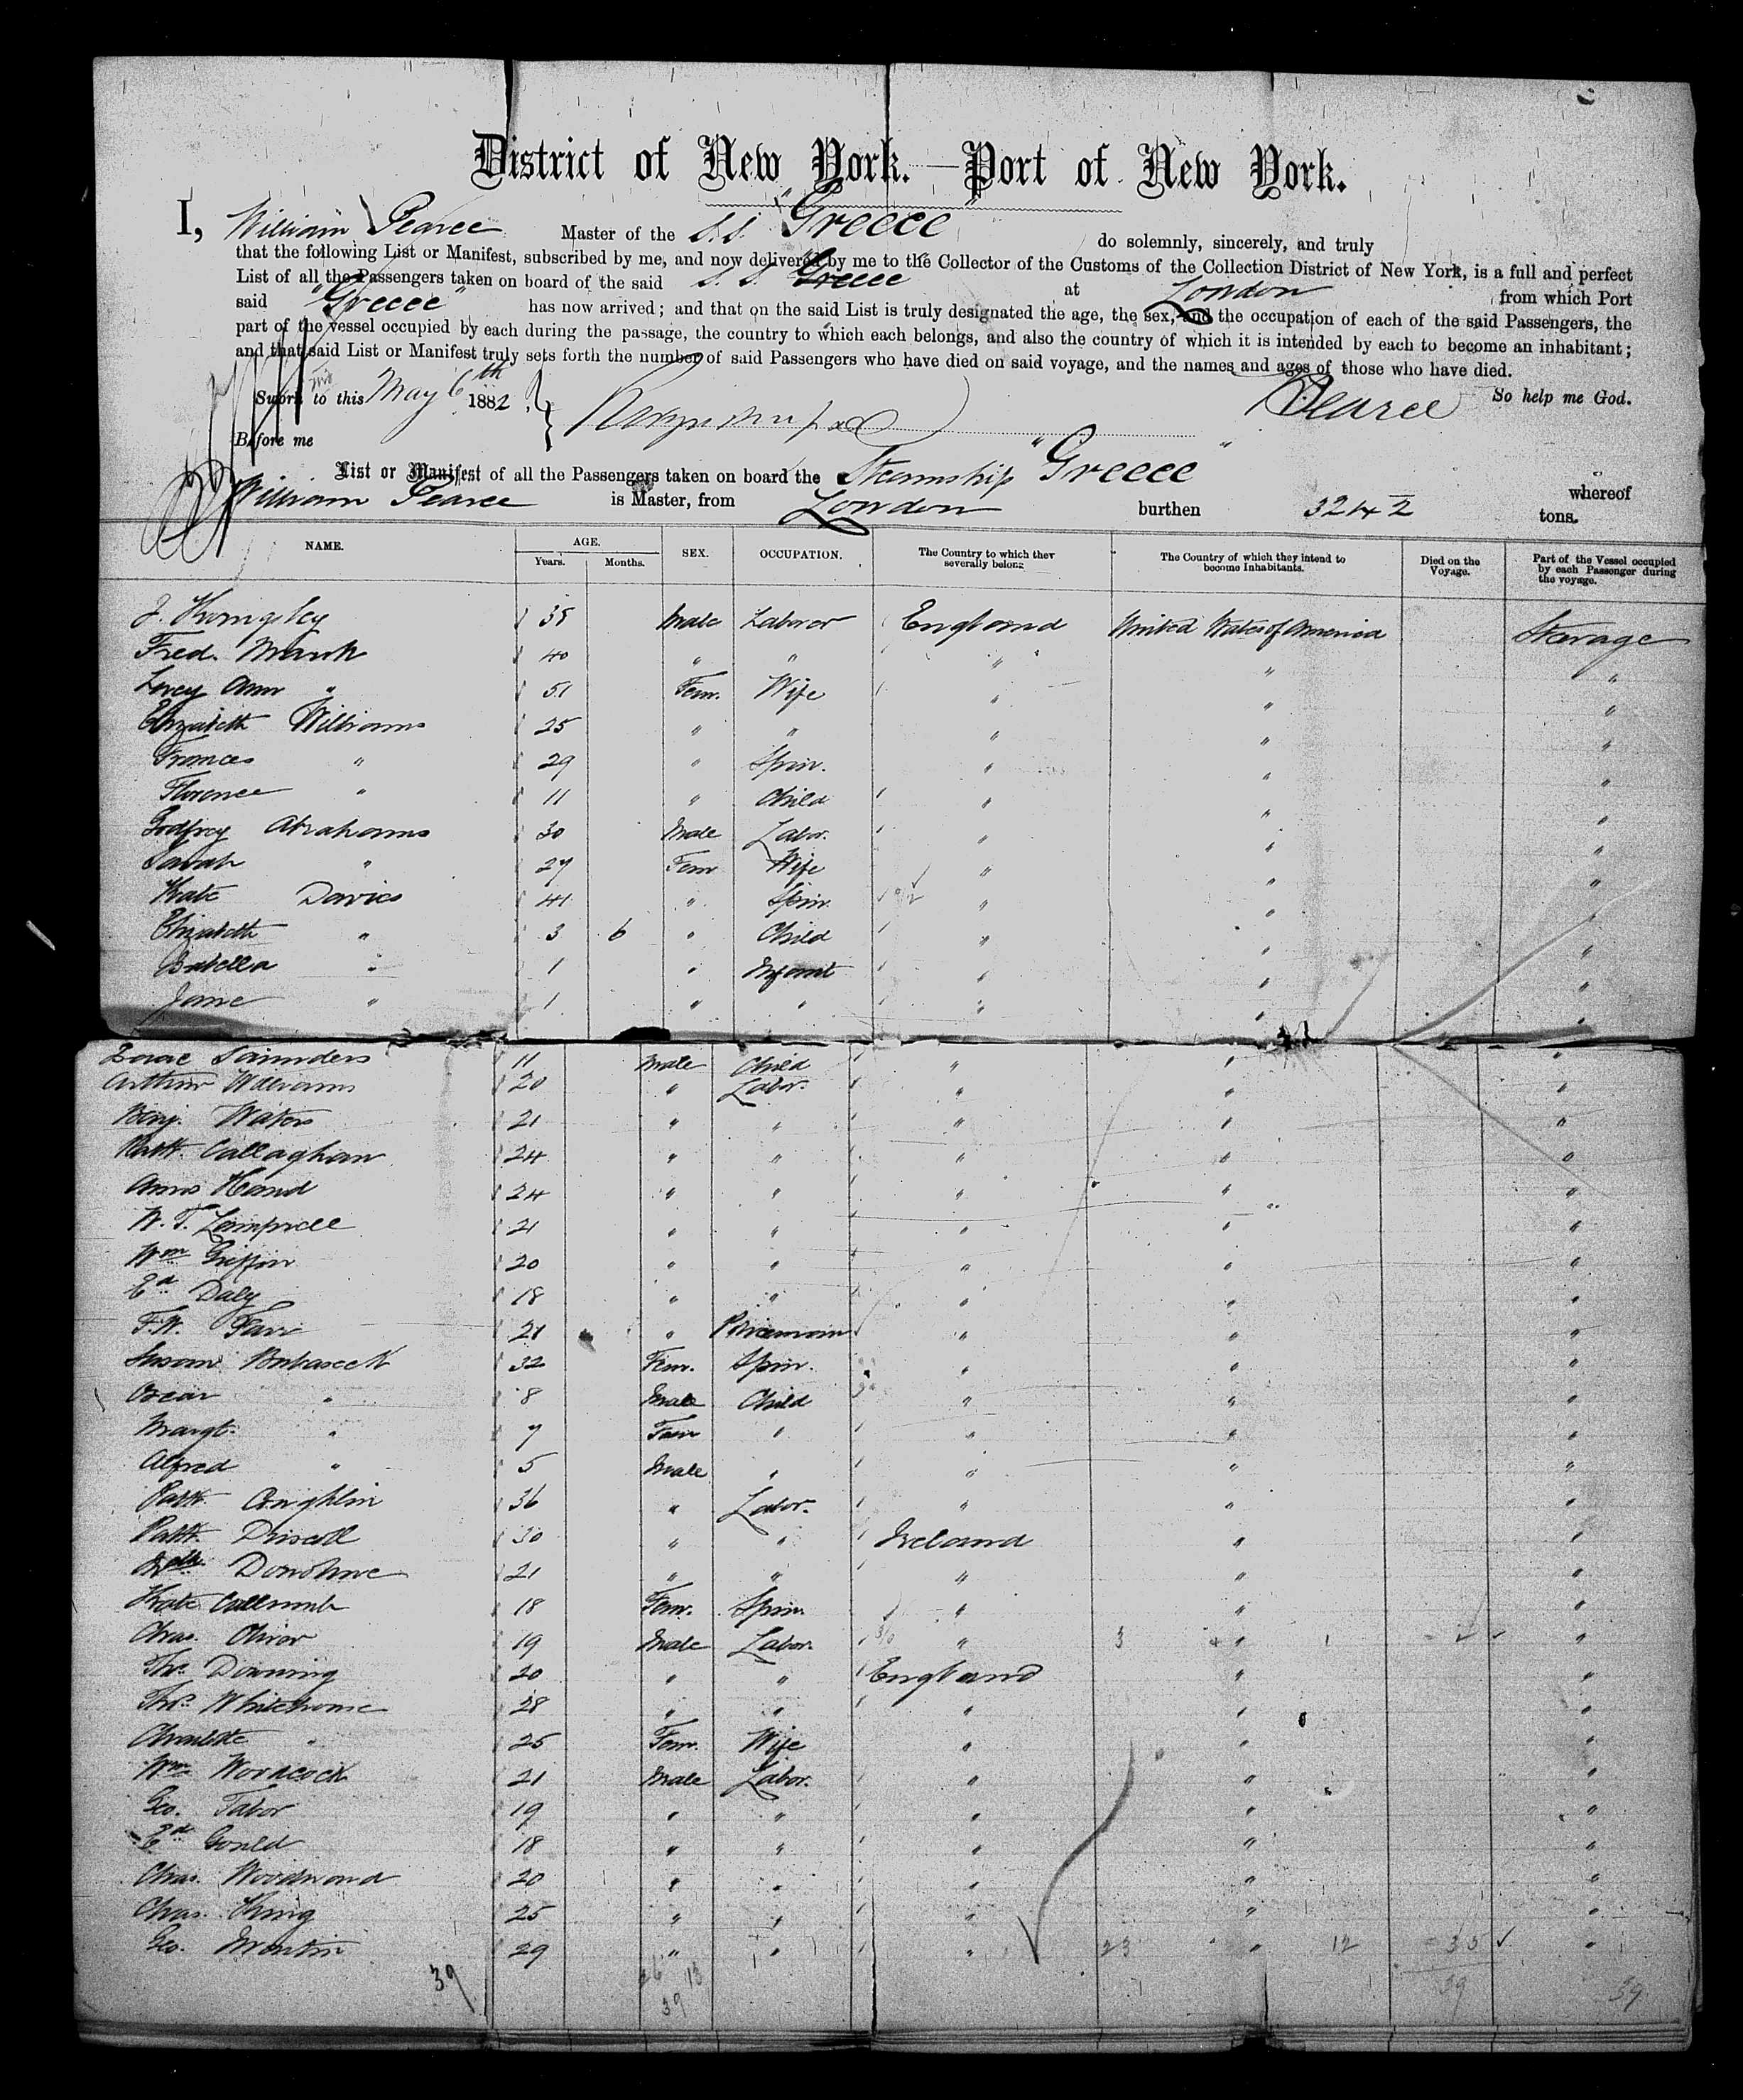 District of New York. — Port of New York.
I, William Pearce Master of the S.S. "Greece do solemnly, sincerely, and truly
that the following List or Manifest, subscribed by me, and now delivered by me to the Collector of the Customs of the Collection District of New York, is a full and perfect
List of all the Passengers taken on board of the said S.S. Greece at London from which Port
said "Greece" has now arrived; and that on the said List is truly designated the age, the sex, and the occupation of each of the said Passengers, the
part of the vessel occupied by each during the passage, the country to which each belongs, and also the country of which it is intended by each to become an inhabitant;
and that said List or Manifest truly sets forth the number of said Passengers who have died on said voyage, and the names and ages of those who have died.
Sworn to this May 6th 1882 Pearce So help me God.
Before me
List or Manifest of all the Passengers taken on board the Steamship "Greece" whereof
William Pearce is Master, from London burthen 3242 tons.
NAME. AGE. SEX. OCCUPATION. The Country to which they severally belong The Country of which they intend to become Inhabitants. Died on the Voyage. Part of the Vessel occupied by each Passenger during the voyage.
Years. Months.
J. 35 Male Laborer England United States of America Steerage
Fred. Mank 40 " " " " "
Lovey Ann " 51 Fem. Wife " " "
Elizabeth Williams 25 " " " " "
Frances " 29 " Spin. " " "
Florence " 11 " Child " " "
Godfrey Abrahams 30 Male Labor. " " "
Sarah " 27 Fem Wife " " "
Kate Davies 41 " Spin. " " "
Elizabeth " 3 6 " Child " " "
Isabella " 1 " Infant " " "
Jane " 1 " " " " "
Isaac Saunders 11 Male Child " " "
Arthur Williams 20 " Labor. " " "
Benj. Waters 21 " " " " "
Patk. Callaghan 24 " " " " "
Amos Hand 24 " " " " "
W. T. 21 " " " " "
Wm Griffin 20 " " " " "
Ed Daly 18 " " " " "
F.W. 21 " Policeman " " "
Susan 32 Fem. Spin. " " "
Oscar " 8 Male Child " " "
Margt. " 7 Fem " " " "
Alfred " 5 Male " " " "
Patk. Coughlin 36 " Labor. " " "
Patk. Driscoll 30 " " Ireland " "
Donohue 21 " " " " "
Kate 18 Fem. Spin. " " "
Chas. Oliver 19 Male Labor. " 3 " 1 "
Thos. Downing 20 " " England " "
Thos. Whitehouse 28 " " " " "
Charlotte " 25 Fem. Wife " " "
Wm Woodcock 21 Male Labor. " " "
Geo. Tabor 19 " " " " "
Ed Gould 18 " " " " "
Chas. Woodward 20 " " " " "
Chas. King 25 " " " " "
Geo. Martin 29 " " " 23 " 12 = 35 "
39 26 13 39 39
39